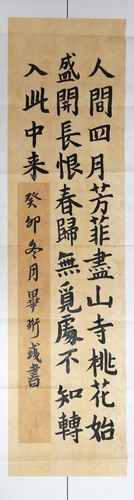 人間四月芳菲盡山寺桃花始
盛開長恨春歸無覓處不知轉
入此中来
癸卯冬月畢珩歲書